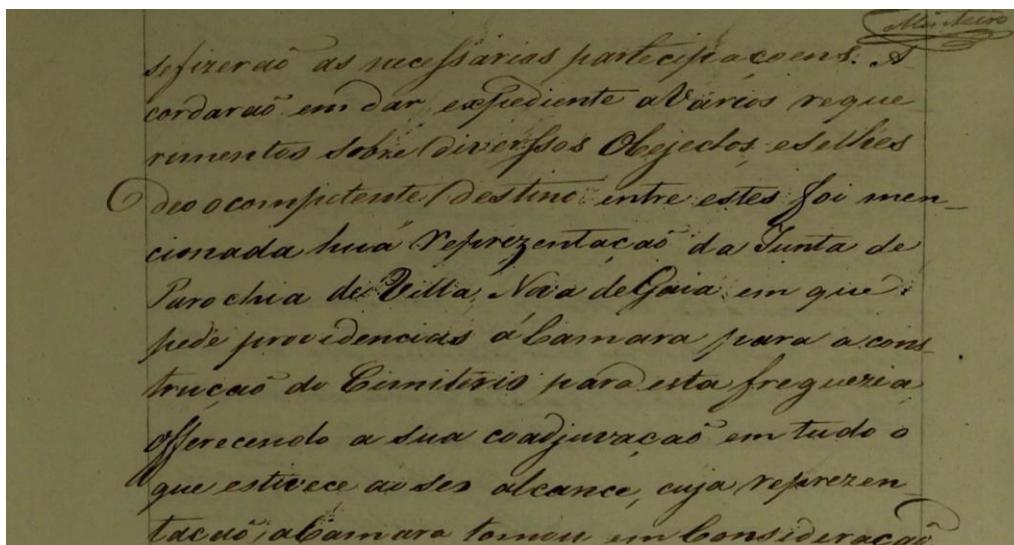 Monteiro
sefizeraõ as necessarias participaçoens. A
cordaraõ em dar expediente a Varios reque
rimentos sobre diverssos Objectos, eselhes
deo o competente destino entre estes foi men_
cionada huã reprezentaçaõ da Junta de
Parochia de Villa Nova de Gaia em que
pede providencias á Camara para a cons_
truçaõ do Cimiterio para esta freguezia
offerecendo a sua coadjuvaçaõ em tudo o
que estivece ao seo alcance, cuja reprezen_
taçaõ, a Camara tomou em Consideraçaõ